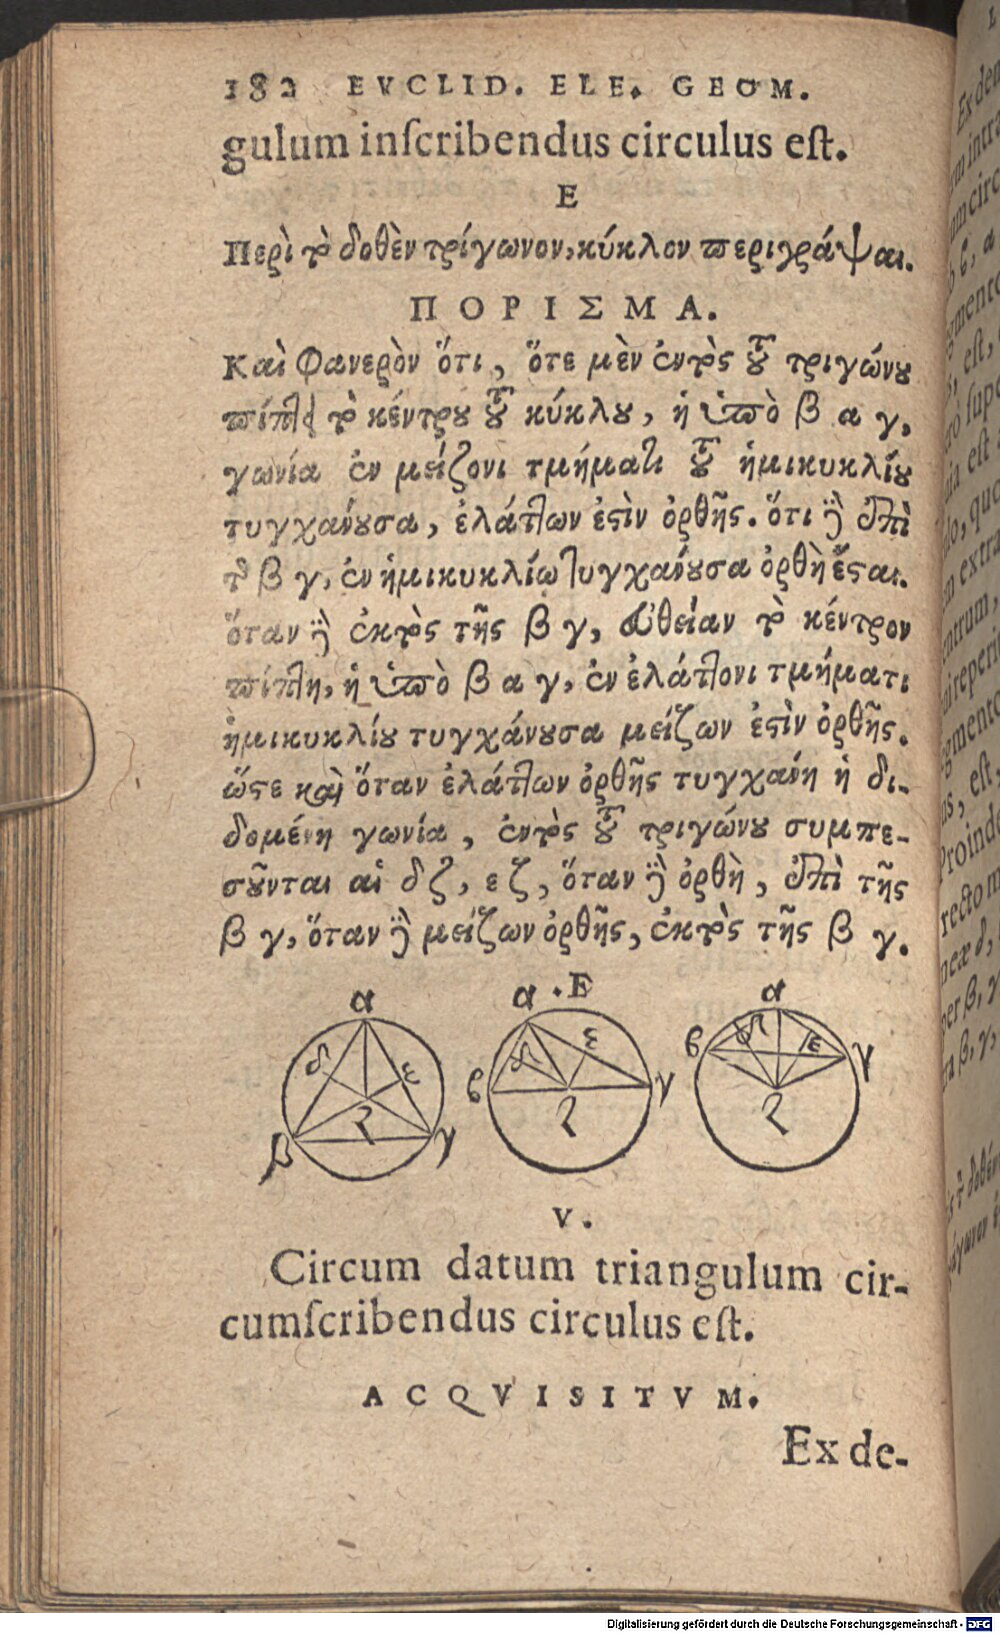 182 EVCLID. ELE. GEOM.
gulum inſcribendus circulus eſt.
E
Περὶ τὸ δοθὲν τρίγωνον, κύκλον περιγράψαι.
ΠΟΡΙΣΜΑ.
Καὶ φανερὸν ὅτι, ὅτε μὲν ἐντὸς τοῦ τριγώνου
πίπτει τὸ κέντρον τοῦ κύκλου, ἡ ὑπὸ β α γ,
γωνία ἐν μείζονι τμήματι τοῦ ἡμικυκλίου
τυγχάνουσα, ἐλάττων ἐστὶν ὀρθῆς. ὅτι δὲ ἐπὶ
τῆς β γ, ἐν ἡμικυκλίῳ τυγχάνουσα ὀρθὴ ἔσται.
ὅταν δὲ ἐκτὸς τῆς β γ, εὐθείαν τὸ κέντρον
πίπτῃ, ἡ ὑπὸ β α γ, ἐν ἐλάττονι τμήματι
ἡμικυκλίου τυγχάνουσα μείζων ἐστὶν ὀρθῆς.
ὥστε καὶ ὅταν ἐλάττων ὀρθῆς τυγχάνη ἡ δι-
δομένη γωνία, ἐντὸς τοῦ τριγώνου συμπε-
σοῦνται αἱ δ ζ, ε ζ, ὅταν δὲ ὀρθὴ, ἐπὶ τῆς
β γ, ὅταν δὲ μείζων ὀρθῆς, ἐκτὸς τῆς β γ.
.E
α δ ε ζ β γ
α δ ε β ζ γ
α β δ ε γ ζ
V.
Circum datum triangulum cir-
cumſcribendus circulus eſt.
ACQVISITVM.
Ex de-
Digitalisierung gefördert durch die Deutsche Forschungsgemeinschaft - DFG